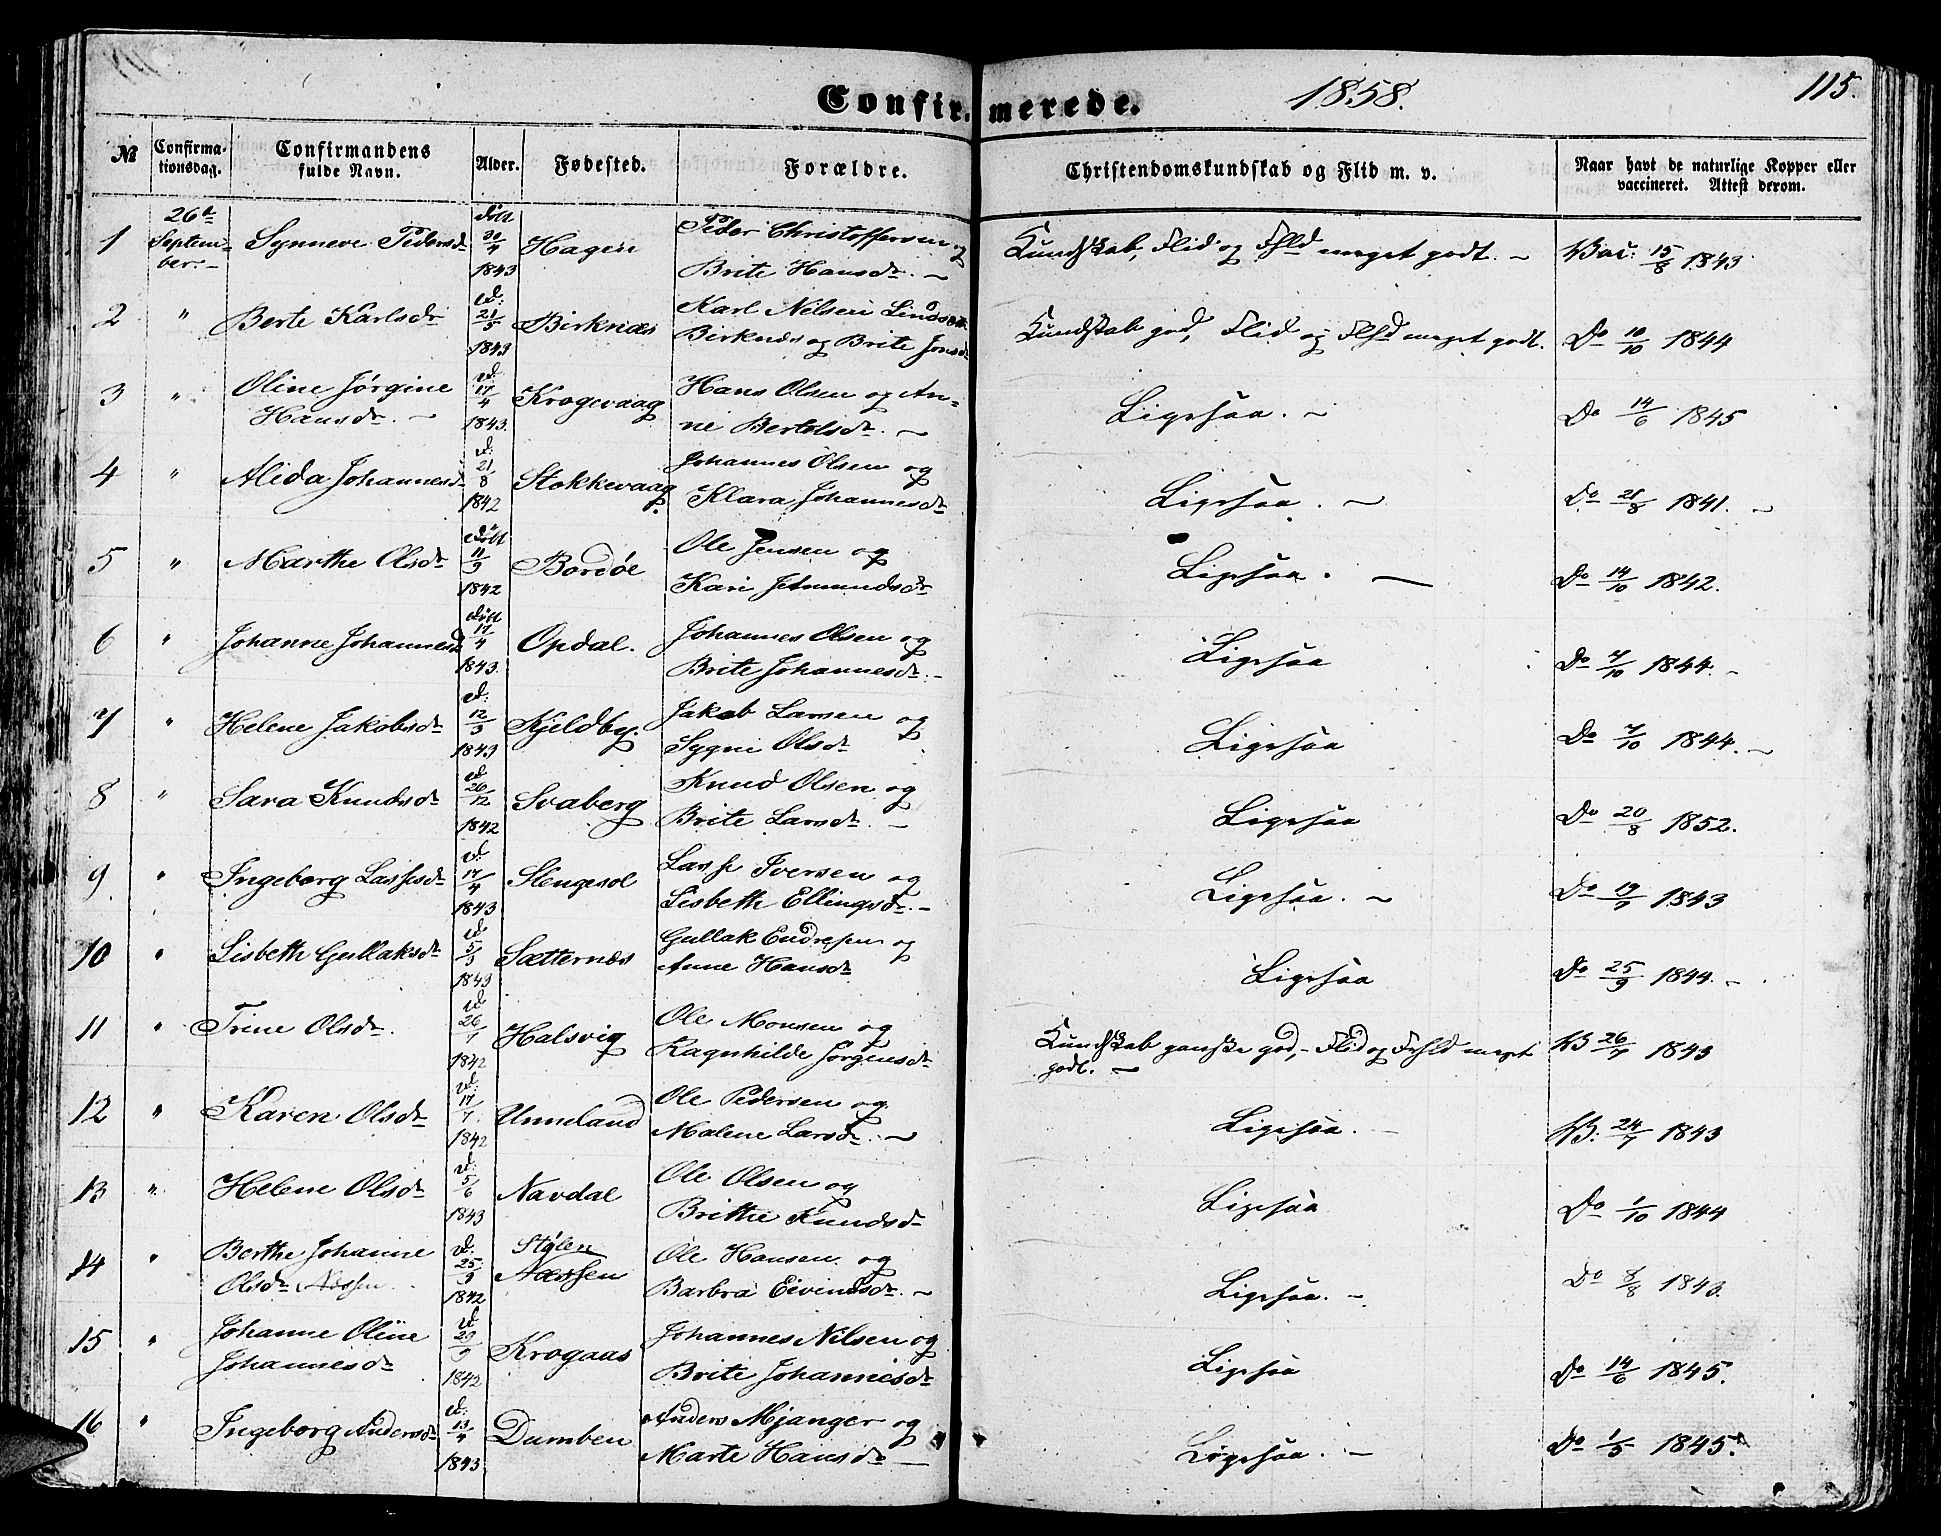 Confirmerede. 1858. 115.
№ Confirmationsdag. Confirmandens fulde Navn. Alder. Fødested. Forældre. Christendomskundskab og Flid m. v. Naar havt de naturlige Kopper eller vaccineret. Attest derom.
1 26de September.- Synneve Pedersdr 30/4 1843 Hagen Peder Christoffersen og Brite Hansdr. - Kundskab, Flid og Fhld meget godt. - Vac: 15/8 1843
2 " Berte Karlsdr d: 21/5 1843 Birknæs Karl Nilsen Birknæs og Brite Jonsdr Kundskab god, Flid og Fhld meget godt. Do 10/10 1844
3 " Oline Jørgine Hansdr. - d 17/4 1843. Krogevaag Hans Olsen og Anne Bertelsdr. - Ligesaa. - Do 14/6 1845
4 " Alida Johannesdr d: 21/8 1842 Stokkevaag Johannes Olsen og Klara Johannesdr Ligesaa. - Do 21/8 1841. -
5 " Marthe Olsdr 11/9 1842 Bordøe Ole Jensen og Kari Amundsdr Ligesaa. - Do 14/10 1842.
6 " Johanne Johannesd 17/4 1843. Opdal. Johannes Olsen og Brite Johannesdr. - Ligesaa Do 7/10 1844. -
7 " Helene Jakobsdr d: 12/3 1843 Kjeldby. Jakob Larsen og Sygni Olsdr Ligesaa Do 7/10 1844. -
8 " Sara Knudsdr d 26/12 1842 Svaberg Knud Olsen og Brite Larsdr. - Ligesaa Do 20/8 1852.
9. " Ingeborg Lassesdr d: 17/4 1843 Slengesol Lasse Iversen og Lisbeth Ellingsdr. - Ligesaa. - Do 19/7 1843
10 " Lisbeth Gullaksdr d 5/3 1843 Sætternæs Gullak Endresen og Anne Hansdr Ligesaa Do 25/9 1844. -
11 " Trine Olsdr. d 26/7 1842 Halsvig Ole Monsen og Ragnhilde Jørgensdr Kundskab ganske god, - Flid og Fhld meget godt. - V 26/7 1843
12 " Karen Olsdr d: 17/7 1842 Unneland Ole Pedersen og Malene Larsdr. - Ligesaa. - V: 24/7 1843
13 " Helene Olsdr d: 5/6 1843 Navdal Ole Olsen og Brithe Knudsdr Ligesaa Do 1/10 1844
14 " Berthe Johanne Olsdr Næssen d: 25/9 1842 Stølen Næssen Ole Hansen. og Barbra Eivindsdr. - Ligesaa. - Do 8/8 1843.
15 " Johanne Oline Johannesdr d 29/9 1842 Krogaas Johannes Nilsen og Brite Johannesdr Ligesaa Do 14/6 1845.
16 " Ingeborg Andersdr d: 13/4 1843 Dumben Anders Mjanger og Marte Hansdr - Ligesaa. - Do 1/5 1845.